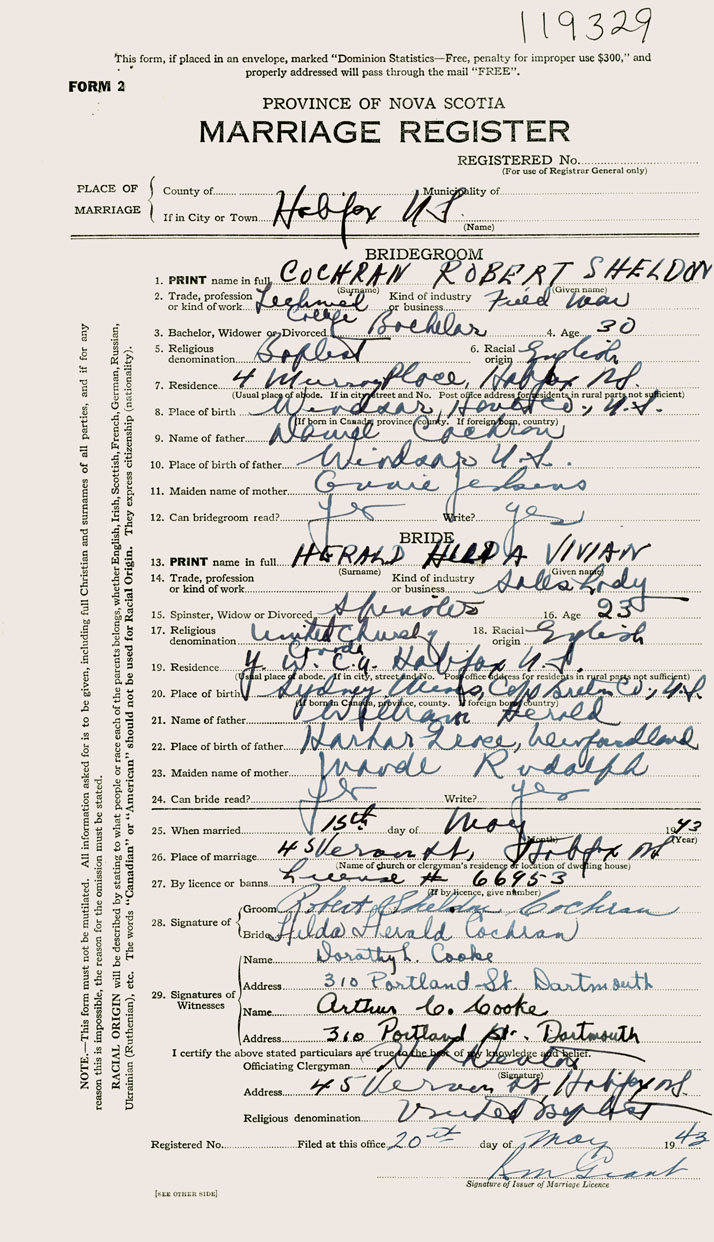 119329
This form, if placed in an envelope, marked "Dominion Statistics—Free, penalty for improper use $300," and
properly addressed will pass through the mail "FREE".
FORM 2
PROVINCE OF NOVA SCOTIA
MARRIAGE REGISTER
REGISTERED No.
(For use of Registrar General only)
PLACE OF MARRIAGE
County of Municipality of
If in City or Town Halifax N.S.
(Name)
BRIDEGROOM
1. PRINT name in full COCHRAN ROBERT SHELDON
(Surname) (Given name)
2. Trade, profession or kind of work College Kind of industry or business
3. Bachelor, Widower or Divorced Bachelor 4. Age 30
5. Religious denomination Baptist 6. Racial origin English
7. Residence 4 Murray Place, Halifax N.S.
(Usual place of abode. If in city street and No. Post office address for residents in rural parts not sufficient)
8. Place of birth Windsor, Hants Co., N.S.
(If born in Canada, province, county. If foreign born, country)
9. Name of father Daniel Cochran
10. Place of birth of father Windsor N.S.
11. Maiden name of mother Jenkins
12. Can bridegroom read? yes Write? yes
BRIDE
13. PRINT name in full HERALD HILDA VIVIAN
(Surname) (Given name)
14. Trade, profession or kind of work Kind of industry or business Sales Lady
15. Spinster, Widow or Divorced Spinster 16. Age 23
17. Religious denomination United Church Canada 18. Racial origin English
19. Residence Y.W.C.A. Halifax N.S.
(Usual place of abode. If in city, street and No. Post office address for residents in rural parts not sufficient)
20. Place of birth Sydney Mines, Cape Breton Co., N.S.
(If born in Canada, province, county. If foreign born, country)
21. Name of father William Herald
22. Place of birth of father Harbor Grace, Newfoundland
23. Maiden name of mother Maude Rudolph
24. Can bride read? yes Write? yes
25. When married 15th day of May 1943
(Month) (Year)
26. Place of marriage 45 Vernon St, Halifax NS
(Name of church or clergyman's residence or location of dwelling house)
27. By licence or banns License # 66953
(If by licence, give number)
28. Signature of
Groom Robert Sheldon Cochran
Bride Hilda Herald Cochran
29. Signatures of Witnesses
Name Dorothy L. Cooke
Address 310 Portland St. Dartmouth
Name Arthur C. Cooke
Address 310 Portland St. Dartmouth
I certify the above stated particulars are true to the best of my knowledge and belief.
Officiating Clergyman
(Signature)
Address 45 Vernon St Halifax NS.
Religious denomination United Baptist
Registered No. Filed at this office 20th day of May 1943
R M Grant
Signature of Issuer of Marriage Licence
[SEE OTHER SIDE]
NOTE.—This form must not be mutilated. All information asked for is to be given, including full Christian and surnames of all parties, and if for any
reason this is impossible, the reason for the omission must be stated.
RACIAL ORIGIN will be described by stating to what people or race each of the parents belongs, whether English, Irish, Scottish, French, German, Russian,
Ukrainian (Ruthenian), etc. The words "Canadian" or "American" should not be used for Racial Origin. They express citizenship (nationality).